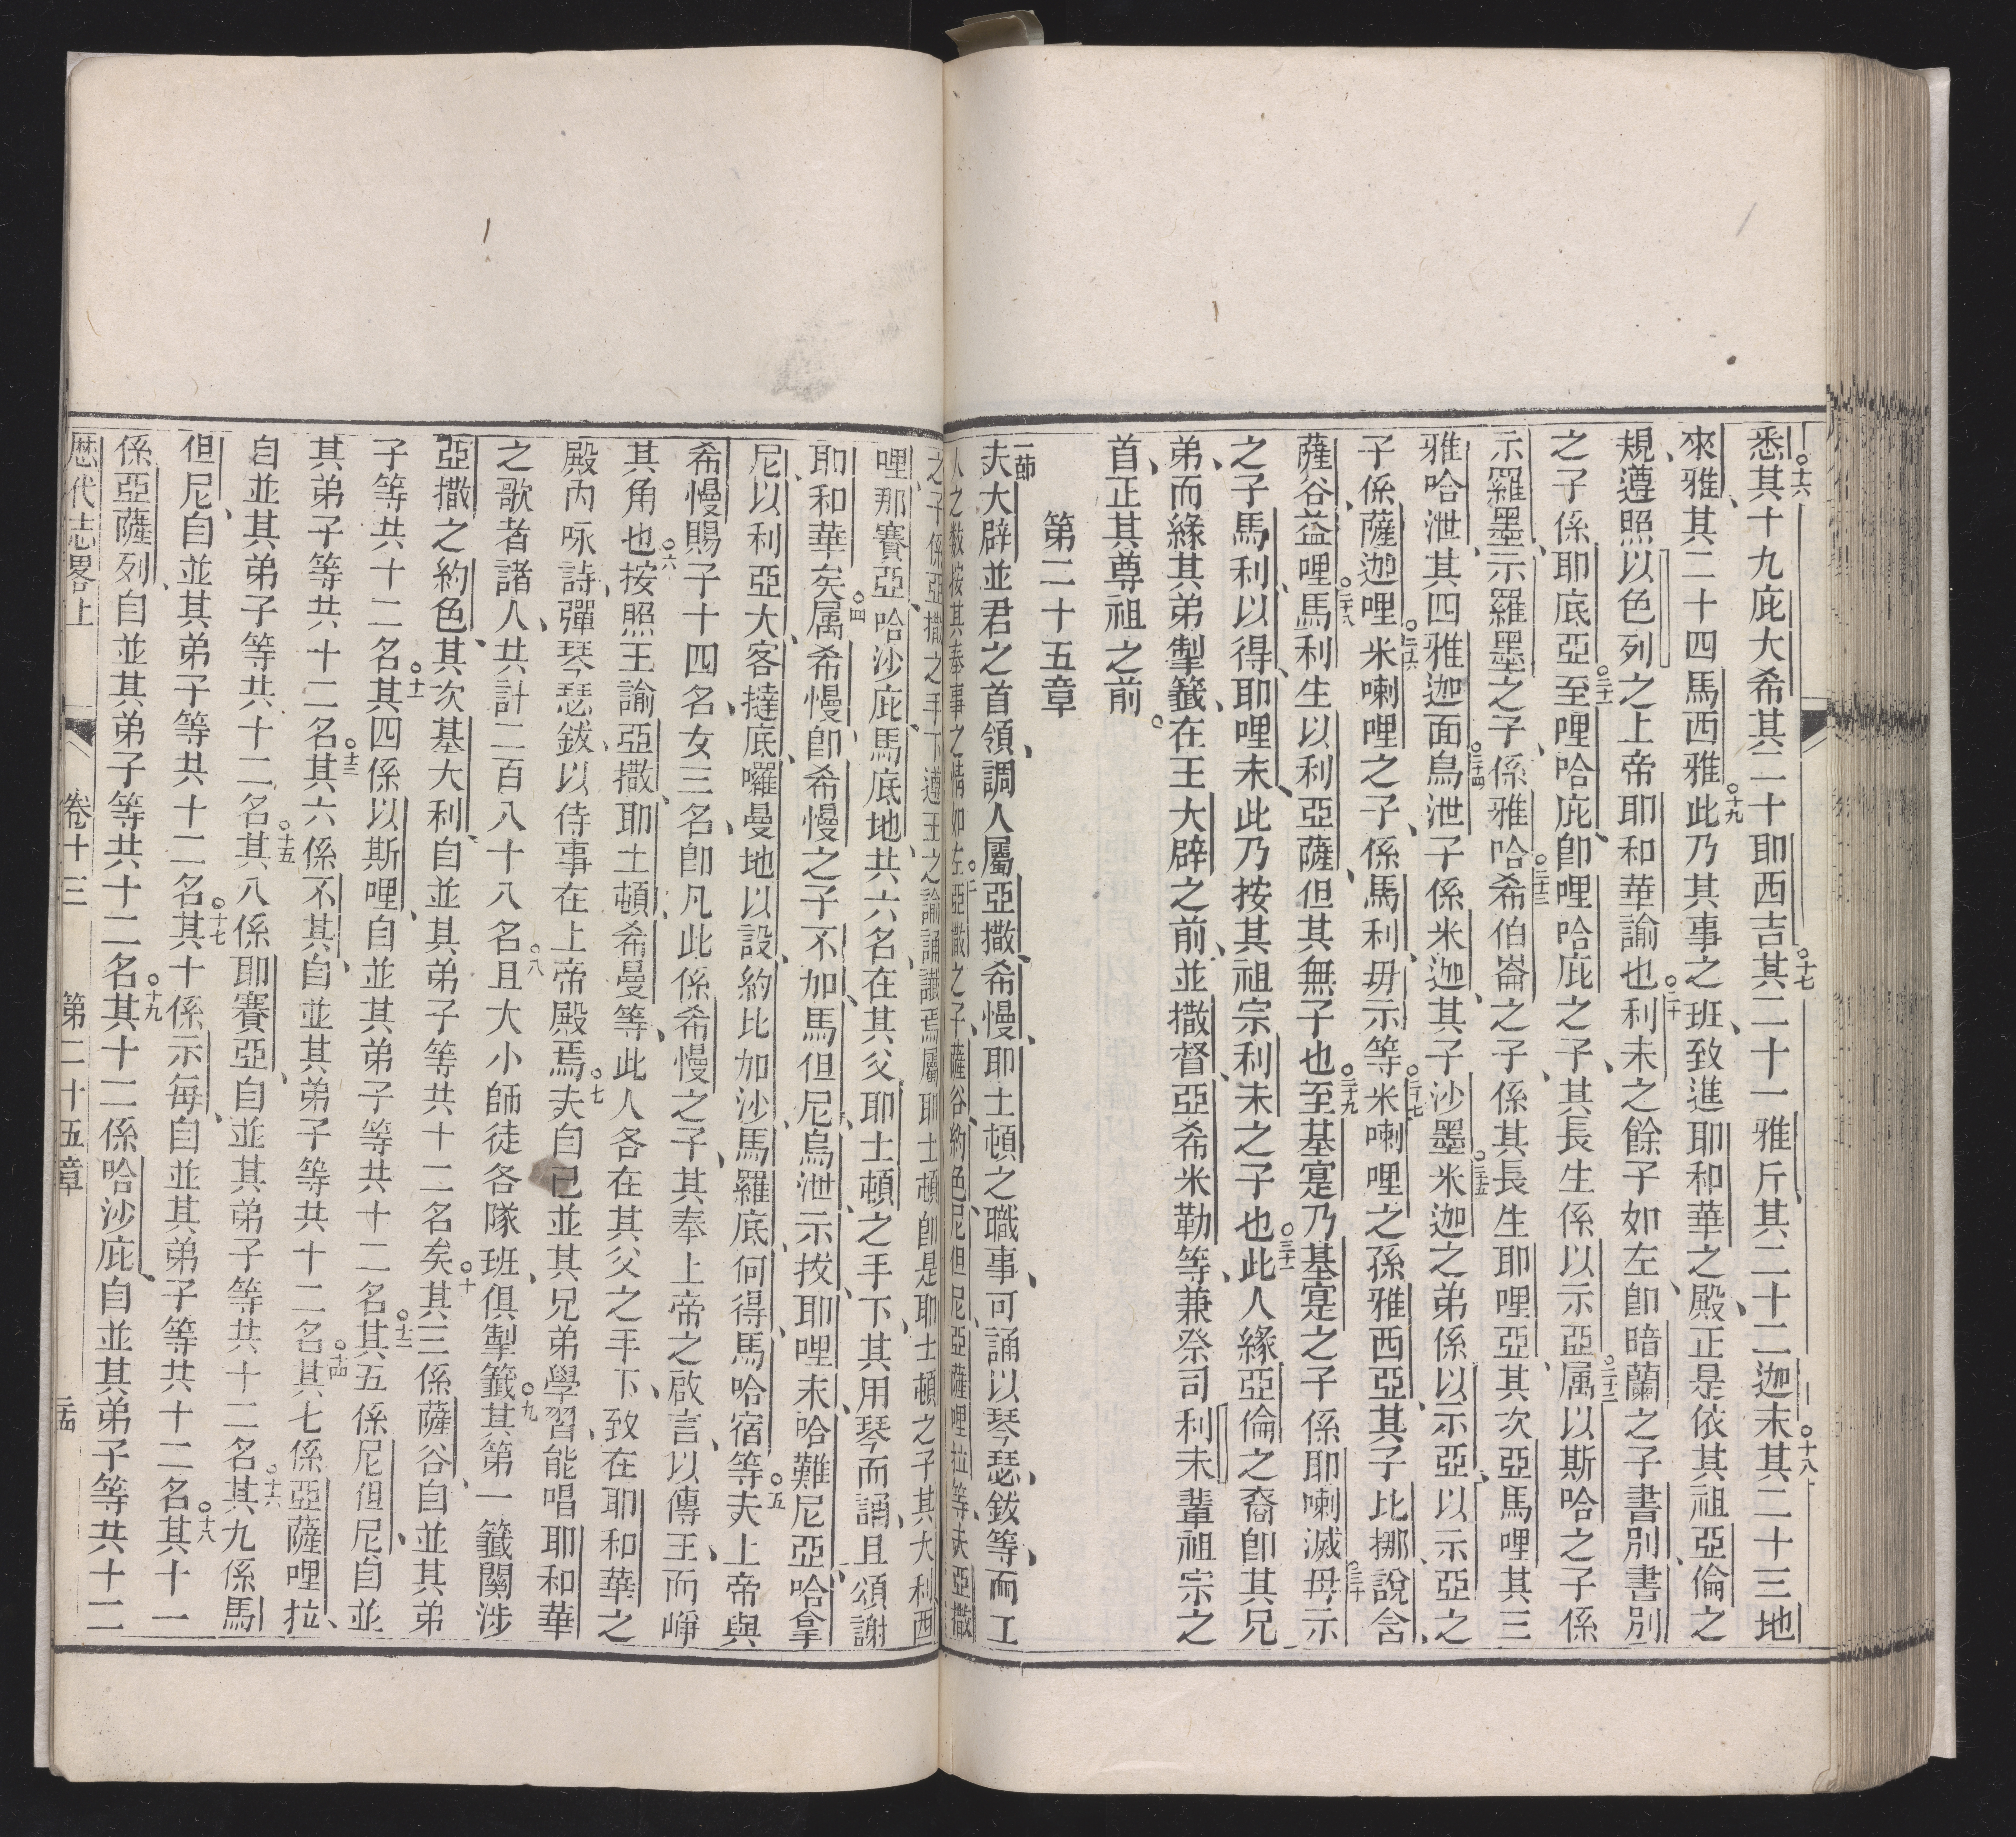 悉其十九庇大希其二十耶西吉○十七其二十一雅斤、其二十二迦末○十八其二十三地
來雅、其二十四馬西雅○十九此乃其事之班、致進耶和華之殿、正是依其祖亞倫之
規、遵照以色列之上帝耶和華諭也○二十利未之餘子如左、卽暗蘭之子書別、書別
之子係耶底亞○二十一至哩哈庇、卽哩哈庇之子、其長生係以示亞○二十二属以斯哈之子係
示羅墨、示羅墨之子、係雅哈○二十三希伯崙之子、係其長生耶哩亞、其次亞馬哩其三
雅哈泄、其四雅迦面○二十四烏泄子係米迦、其子沙墨○二十五米迦之弟係以示亞、以示亞之
子係薩迦哩○二十六米喇哩之子、係馬利、毋示等○二十七米喇哩之孫雅西亞、其子比挪、說含、
薩谷、益哩○二十八馬利生以利亞薩、但其無子也○二十九至基寔乃基寔之子係耶喇滅○三十毋示
之子馬利、以得、耶哩末、此乃按其祖宗利未之子也○三十一此人緣亞倫之裔卽其兄
弟、而緣其弟掣籤、在王大辟之前、並撒督、亞希米勒等、兼祭司利未輩祖宗之
首、正其尊祖之前。
第二十五章
一莭夫大辟並君之首領、調人屬亞撒、希慢、耶土頓之職事、可誦以琴瑟、鈸等、而工
人之数按其奉事之情如左○二亞撒之子、薩谷、約色、尼但尼、亞薩哩拉等、夫亞撒
之子係亞撒之手下遵王之諭誦讖焉○三屬耶土頓卽是耶土頓之子其大利西
哩、那賽亞、哈沙庇、馬底地、共六名、在其父耶土頓之手下、其用琴而誦、且頌謝
耶和華矣○四属希慢、卽希慢之子不加、馬但尼、烏泄、示拔、耶哩末、哈難尼亞、哈拿
尼、以利亞大、客撻底、囉曼地以設、約比加沙、馬羅底、何得、馬哈宿等○五夫上帝與
希慢賜子十四名、女三名、卽凡此係希慢之子、其奉上帝之啟言、以傳王、而崢
其角也○六按照王諭亞撒、耶土頓、希曼等、此人各在其父之手下、致在耶和華之
殿內咏詩、彈琴瑟、鈸、以侍事在上帝殿焉○七夫自已並其兄弟學習、能唱耶和華
之歌者諸人、共計二百八十八名○八且大小師徒各隊班、俱掣籤○九其第一籤關涉
亞撒之約色、其次基大利、自並其弟子等共十二名矣○十其三係薩谷、自並其弟
子等共十二名○十一其四係以斯哩、自並其弟子等共十二名○十二其五係尼但尼、自並
其弟子等共十二名○十三其六係不其、自並其弟子等共十二名○十四其七係亞薩哩拉、
自並其弟子等共十二名○十五其八係耶賽亞、自並其弟子等共十二名○十六其九係馬
但尼、自並其弟子等共十二名○十七其十係示每、自並其弟子等共十二名○十八其十一
係亞薩列、自並其弟子等共十二名○十九其十二係哈沙庇、自並其弟子等共十二
歷代志畧上 卷十三 第二十五章